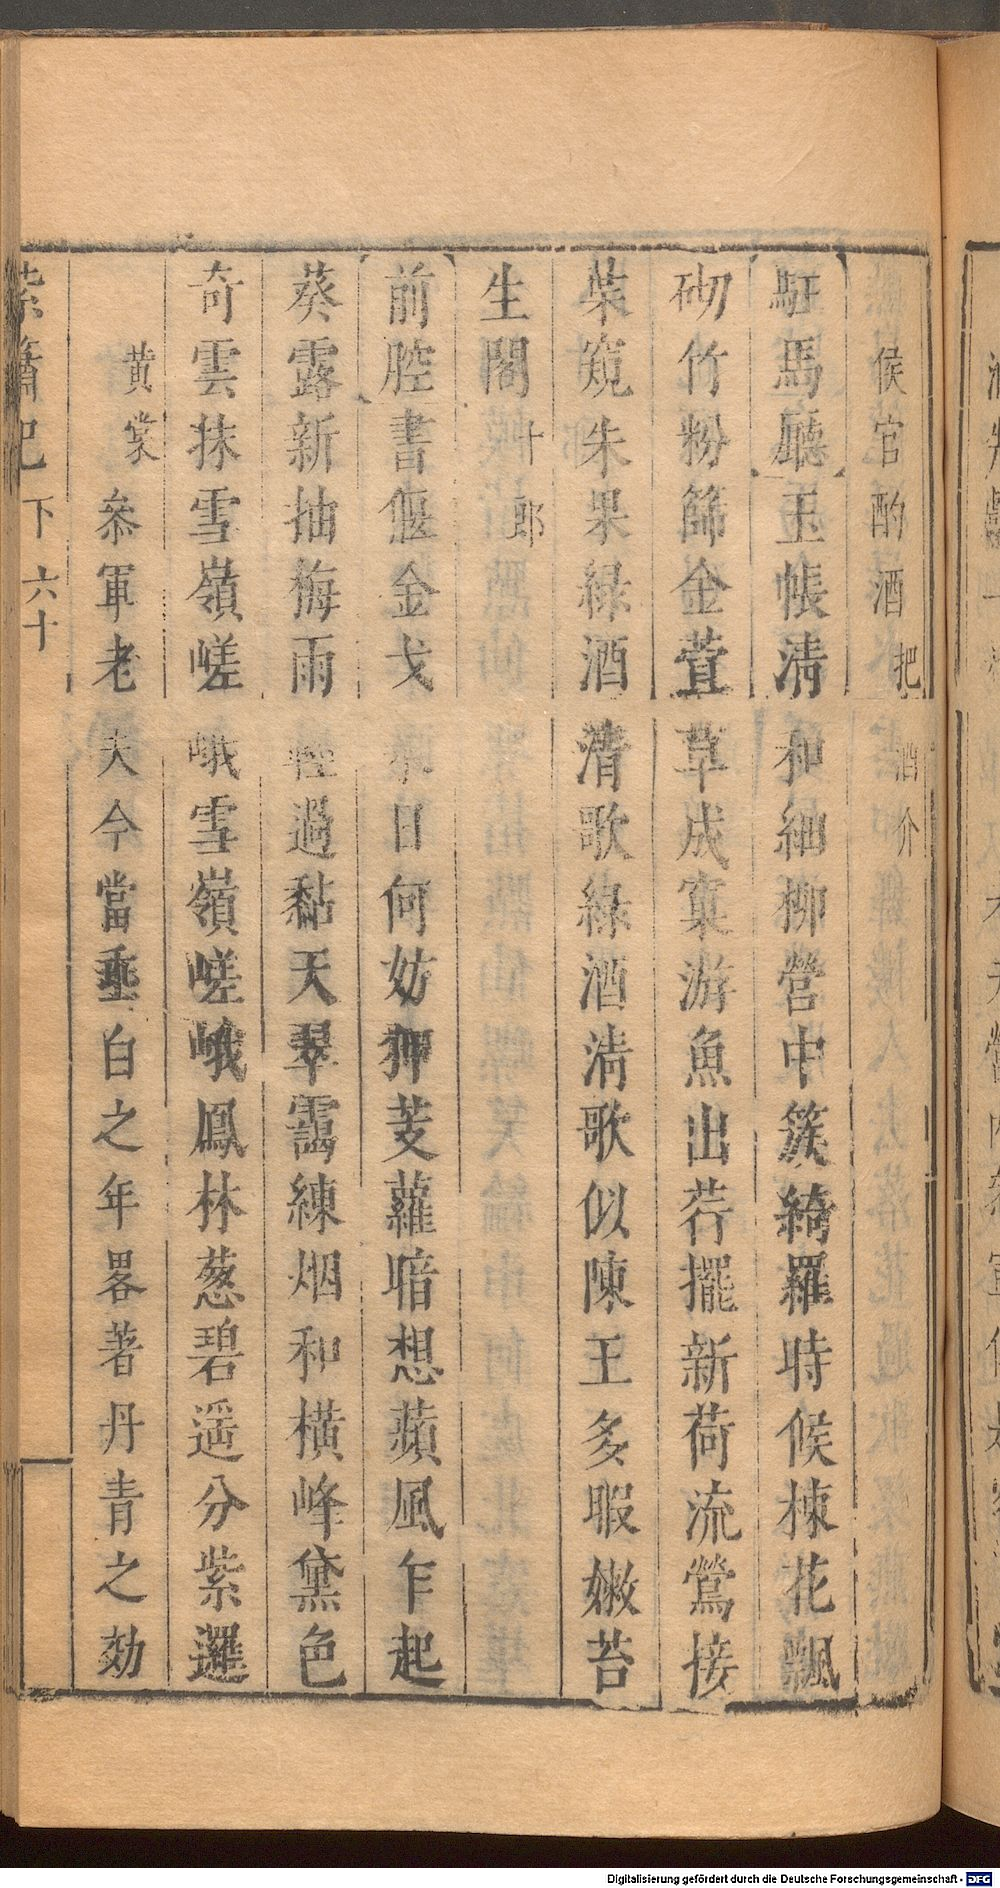 候官酌酒 把酒介
駐馬廳玉帳淸和細柳營中簇綺羅時候楝花飄
砌竹粉篩金萱草成窠游魚出荇擺新荷流鶯接
葉窺朱果綠酒清歌綠酒淸歌似陳王多暇嫩苔
生閣 十郎
前腔書偃金戈 日何妨狎芰蘿暗想蘋風乍起
葵露新抽梅雨輕過黏天翠靄練烟和橫峰黛色
奇雲抹雪嶺嵯峨雪嶺嵯峨鳳林葱碧遥分紫邏
黃棠 叅軍老大今當垂白之年畧著丹青之効
紫簫記 下 六十
Digitalisierung gefördert durch die Deutsche Forschungsgemeinschaft - DFG